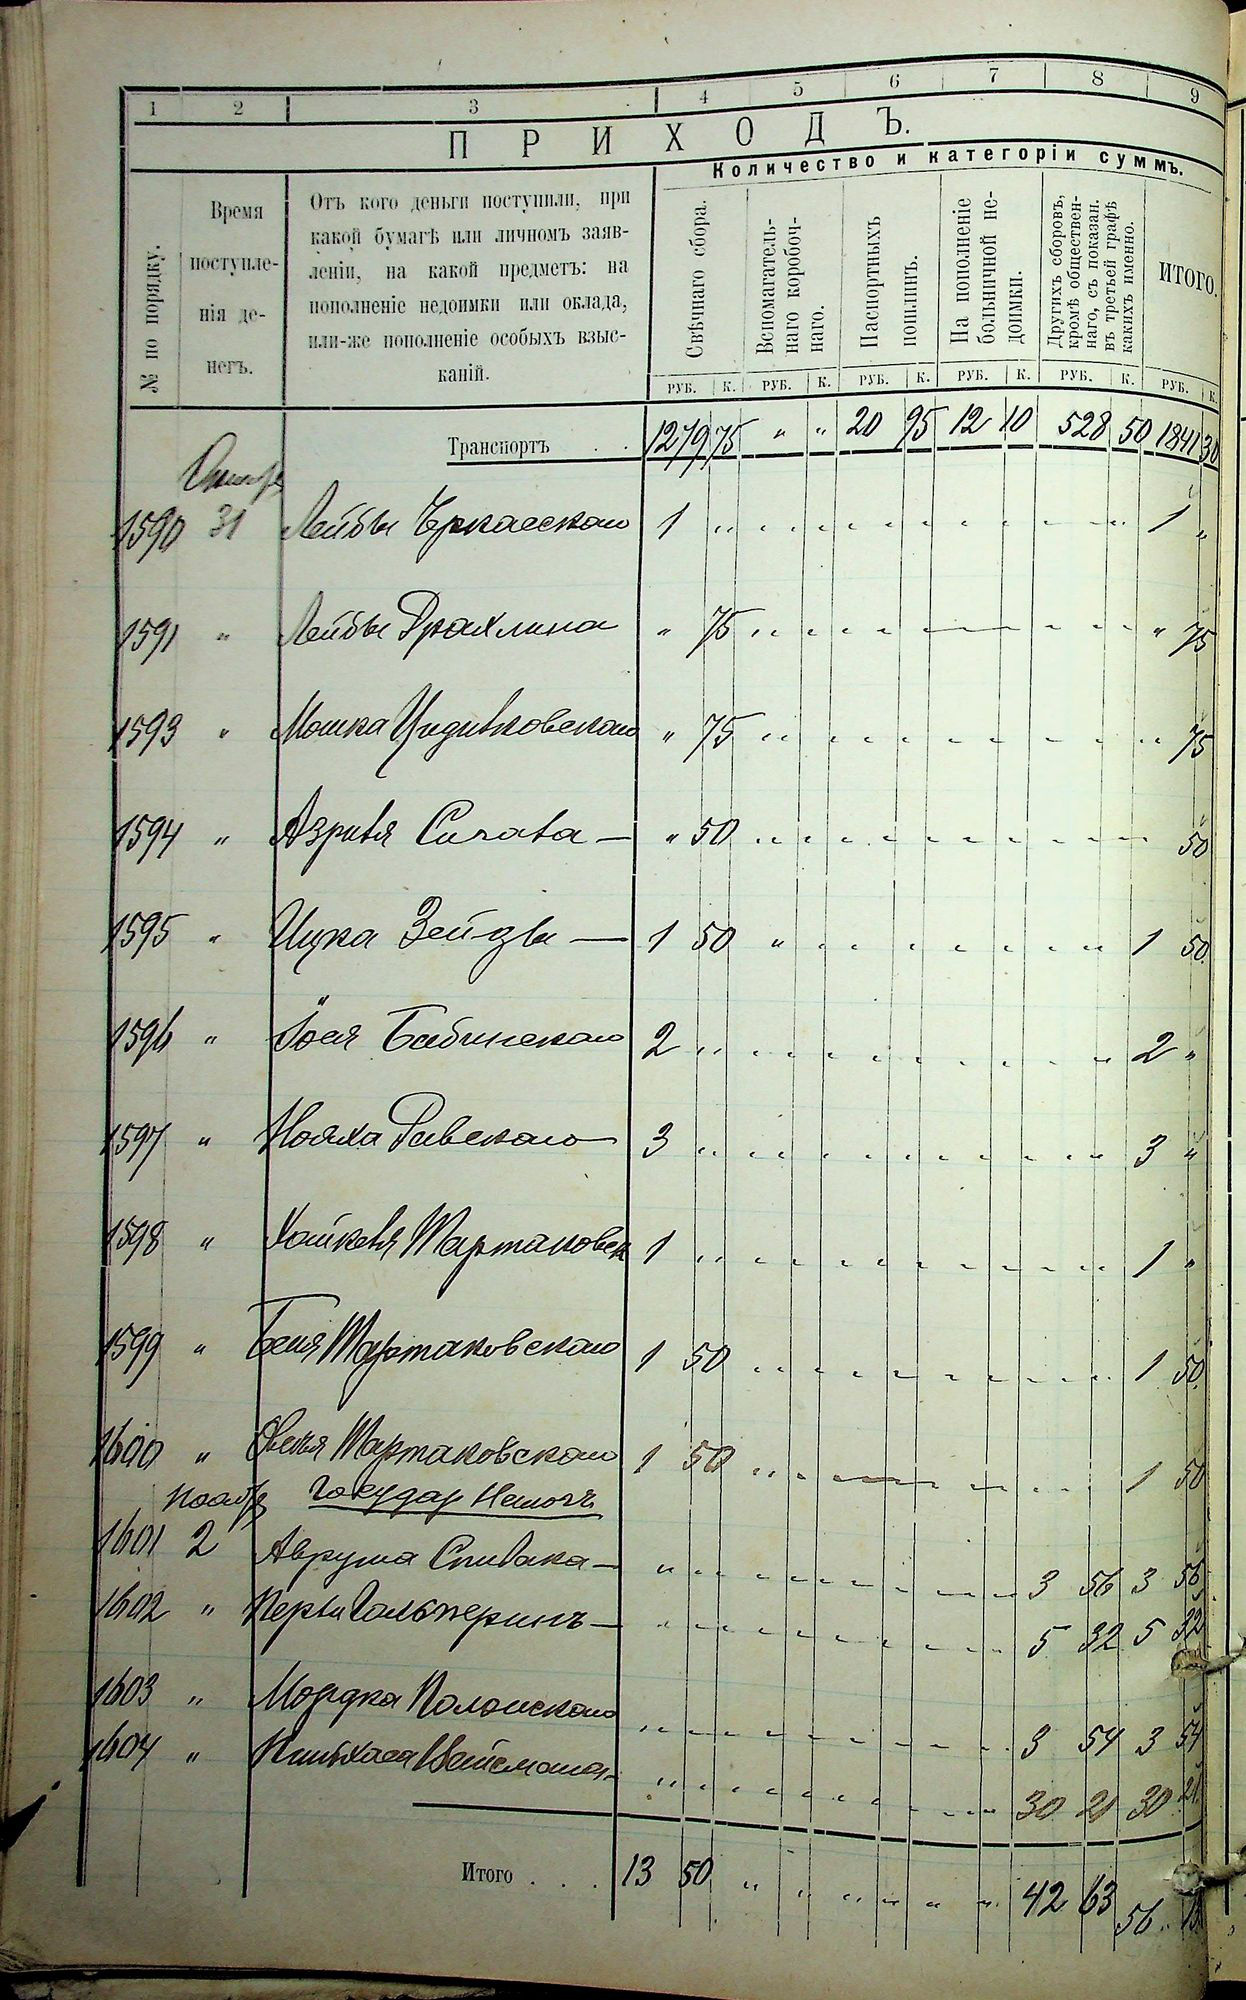 1 2 3 4 5 6 7 8 9
ПРИХОДЪ.
Количество и категоріи суммъ.
№ по порядку.
Время поступле-
нія де-
негъ.
Отъ кого деньги поступили, при
какой бумагѣ или личномъ заяв-
леніи, на какой предметъ: на
пополненіе недоимки или оклада,
или-же пополненіе особыхъ взыс-
каній.
Свѣчнаго сбора.
Вспомагатель-
наго коробоч-
наго.
Паспортныхъ
пошлинъ.
На пополненіе
больничной не-
доимки.
Другихъ сборовъ,
кромѣ обществен-
наго, съ показан.
въ третьей графѣ
какихъ именно.
ИТОГО.
РУБ. К. РУБ. К. РУБ. К. РУБ. К. РУБ. К. РУБ. К.
Транспортъ . . 1279 75 " " 20 95 12 10 528 50 1841 30
1590 31 Лейбы Черкасскаго 1 " 1 "
1591 " Лейбы Драхлина " 75 " 75
1593 " Мошка " 75 " 75
1594 " Азриля " 50 " 50
1595 " Ицка Зейды 1 50 1 50
1596 " Іося Бабинскаго 2 " 2 "
1597 " Нояха Равскаго 3 " 3 "
1598 " Хайкеля Тартаковск 1 " 1 "
1599 " Беня Тартаковскаго 1 50 1 50
1600 " Тартаковскаго 1 50 1 50
Ноябр Государ
1601 2 Авруша Спивака 3 56 3 56
1602 " Гальперинъ 5 32 5 32
1603 " Мордка Полонскаго 3 54 3 54
1604 " Пинхаса Вайсмана 30 21 30 21
Итого . . . 13 50 " " " " " " 42 63 56 13